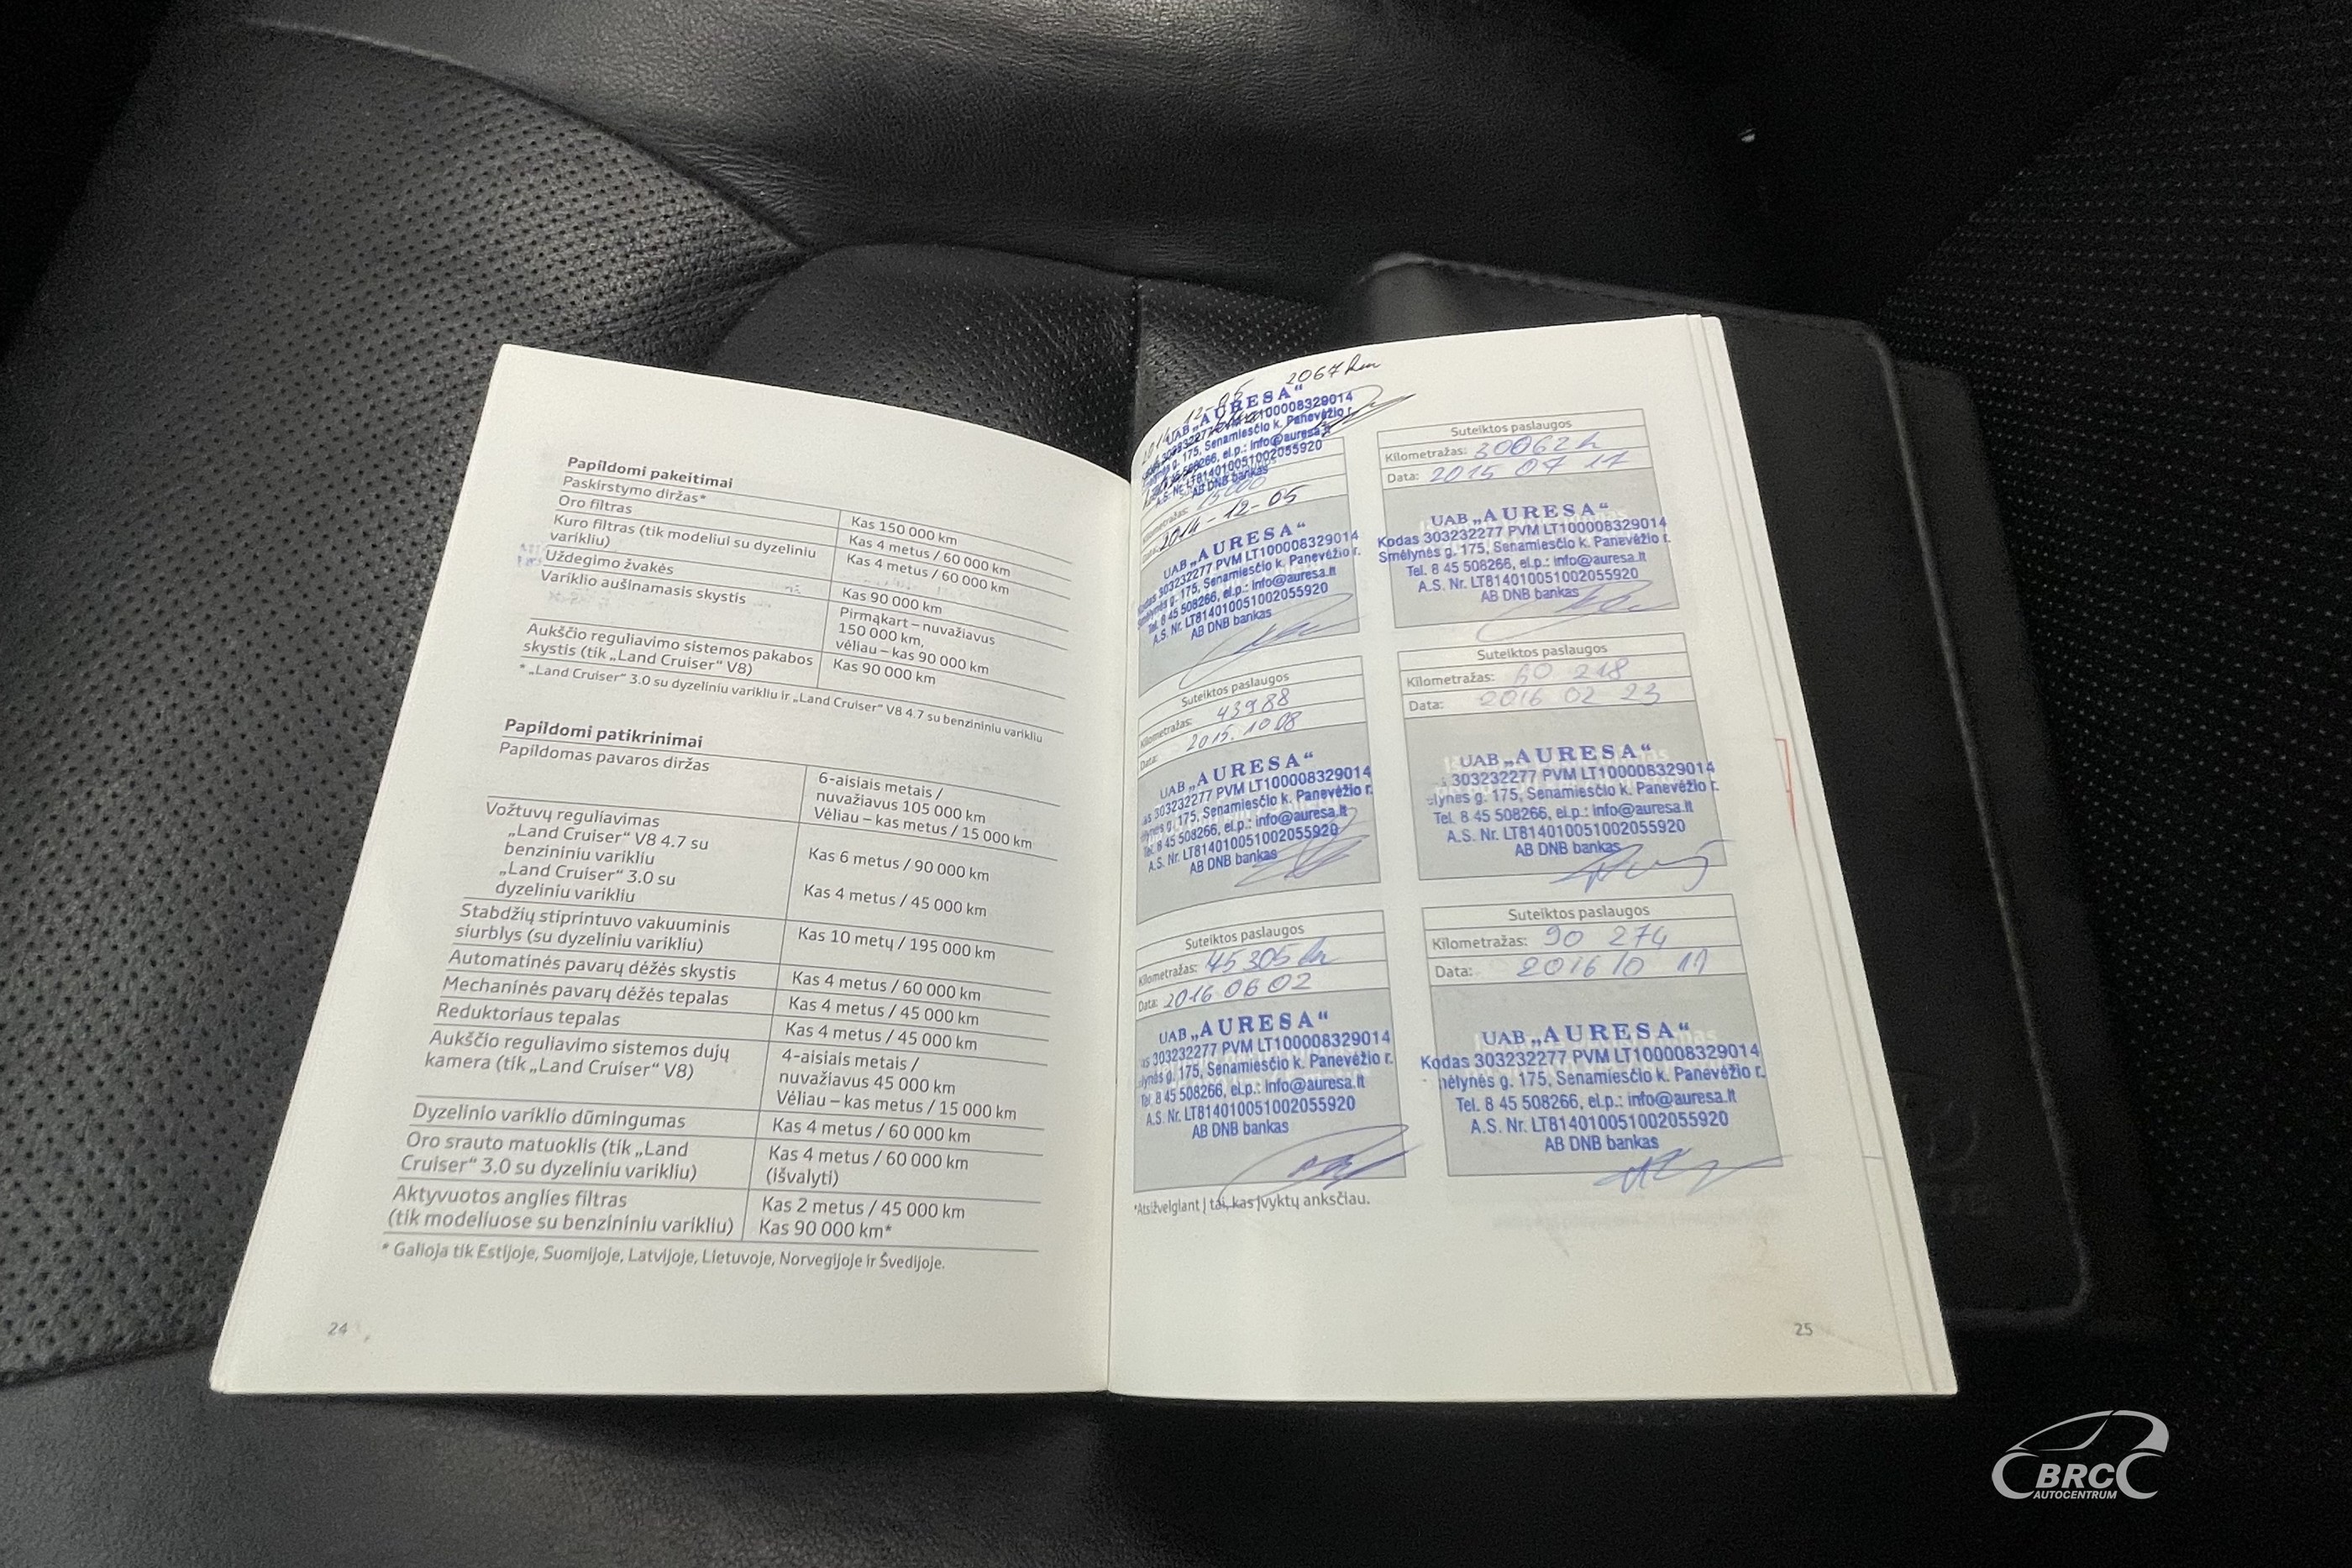 Papildomi pakeitimai
Paskirstymo diržas* Kas 150 000 km
Oro filtras Kas 4 metus / 60 000 km
Kuro filtras (tik modeliui su dyzeliniu
varikliu) Kas 4 metus / 60 000 km
Uždegimo žvakės Kas 90 000 km
Variklio aušinamasis skystis Pirmąkart – nuvažiavus
150 000 km,
vėliau – kas 90 000 km
Aukščio reguliavimo sistemos pakabos
skystis (tik „Land Cruiser“ V8) Kas 90 000 km
* „Land Cruiser“ 3.0 su dyzeliniu varikliu ir „Land Cruiser“ V8 4.7 su benzininiu varikliu
Papildomi patikrinimai
Papildomas pavaros diržas 6-aisiais metais /
nuvažiavus 105 000 km
Vėliau – kas metus / 15 000 km
Vožtuvų reguliavimas
„Land Cruiser“ V8 4.7 su
benzininiu varikliu Kas 6 metus / 90 000 km
„Land Cruiser“ 3.0 su
dyzeliniu varikliu Kas 4 metus / 45 000 km
Stabdžių stiprintuvo vakuuminis
siurblys (su dyzeliniu varikliu) Kas 10 metų / 195 000 km
Automatinės pavarų dėžės skystis Kas 4 metus / 60 000 km
Mechaninės pavarų dėžės tepalas Kas 4 metus / 45 000 km
Reduktoriaus tepalas Kas 4 metus / 45 000 km
Aukščio reguliavimo sistemos dujų
kamera (tik „Land Cruiser“ V8) 4-aisiais metais /
nuvažiavus 45 000 km
Vėliau – kas metus / 15 000 km
Dyzelinio variklio dūmingumas Kas 4 metus / 60 000 km
Oro srauto matuoklis (tik „Land
Cruiser“ 3.0 su dyzeliniu varikliu) Kas 4 metus / 60 000 km
(išvalyti)
Aktyvuotos anglies filtras
(tik modeliuose su benzininiu varikliu) Kas 2 metus / 45 000 km
Kas 90 000 km*
* Galioja tik Estijoje, Suomijoje, Latvijoje, Lietuvoje, Norvegijoje ir Švedijoje.
24
2067 km
UAB „AURESA“
303232277 LT100008329014
g. 175, Senamiesčio k. Panevėžio r.
508266, el.p.: info@auresa.lt
A.S. Nr. LT814010051002055920
AB DNB bankas
Kilometražas: 15000
Data: 2014-12-05
UAB „AURESA“
Kodas 303232277 PVM LT100008329014
Smėlynės g. 175, Senamiesčio k. Panevėžio r.
Tel. 8 45 508266, el.p.: info@auresa.lt
A.S. Nr. LT814010051002055920
AB DNB bankas
Suteiktos paslaugos
Kilometražas: 43988
Data: 2015.10 08
UAB „AURESA“
as 303232277 PVM LT100008329014
lynės g. 175, Senamiesčio k. Panevėžio r.
Tel. 8 45 508266, el.p.: info@auresa.lt
A.S. Nr. LT814010051002055920
AB DNB bankas
Suteiktos paslaugos
Kilometražas: 45305 km
Data: 2016 06 02
UAB „AURESA“
as 303232277 PVM LT100008329014
lynės g. 175, Senamiesčio k. Panevėžio r.
Tel 8 45 508266, el.p.: info@auresa.lt
A.S. Nr. LT814010051002055920
AB DNB bankas
*Atsižvelgiant į tai, kas įvyktų anksčiau.
Suteiktos paslaugos
Kilometražas: 30062
Data: 2015 07 17
UAB „AURESA“
Kodas 303232277 PVM LT100008329014
Smėlynės g. 175, Senamiesčio k. Panevėžio r.
Tel. 8 45 508266, el.p.: info@auresa.lt
A.S. Nr. LT814010051002055920
AB DNB bankas
Suteiktos paslaugos
Kilometražas: 60 218
Data: 2016 02 23
UAB „AURESA“
s 303232277 PVM LT100008329014
lynės g. 175, Senamiesčio k. Panevėžio r.
Tel. 8 45 508266, el.p.: info@auresa.lt
A.S. Nr. LT814010051002055920
AB DNB bankas
Suteiktos paslaugos
Kilometražas: 90 274
Data: 2016 10 11
UAB „AURESA“
Kodas 303232277 PVM LT100008329014
mėlynės g. 175, Senamiesčio k. Panevėžio r.
Tel. 8 45 508266, el.p.: info@auresa.lt
A.S. Nr. LT814010051002055920
AB DNB bankas
25
BRC
AUTOCENTRUM